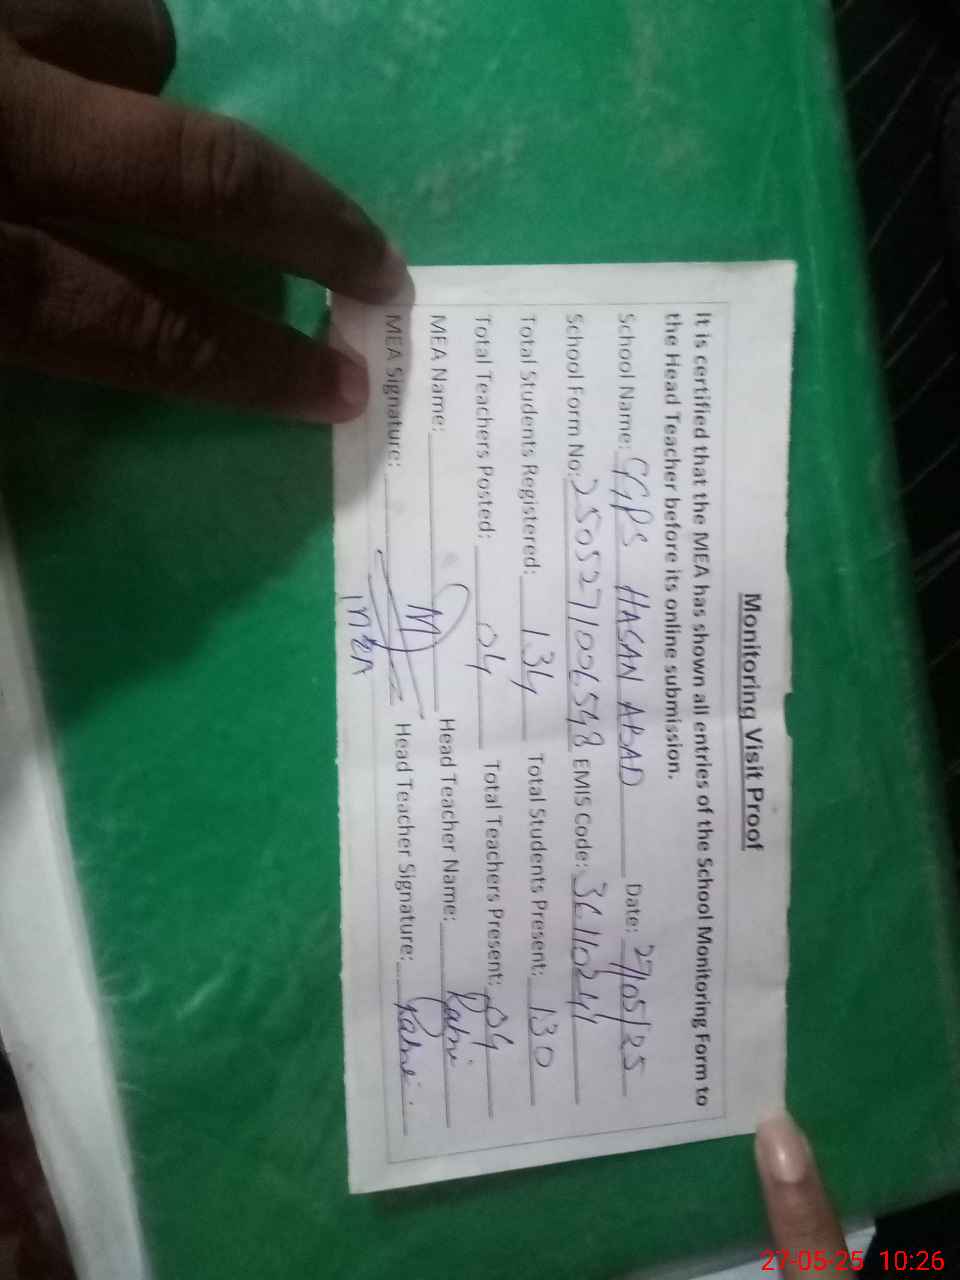 Monitoring Visit Proof
It is certified that the MEA has shown all entries of the School Monitoring Form to
the Head Teacher before its online submission.
School Name: GGPS HASAN ABAD Date: 27/05/25
School Form No: 250527006548 EMIS Code: 36110244
Total Students Registered: 134 Total Students Present: 130
Total Teachers Posted: 04 Total Teachers Present: 04
MEA Name: Head Teacher Name:
MEA Signature: Head Teacher Signature:
27-05-25 10:26